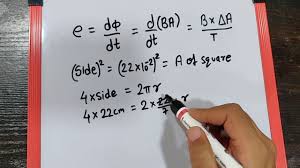 e = dϕ/dt = d(BA)/dt = B × ΔA/T
(Side)² = (22×10⁻²)² = A of square
4 × side = 2πr
4 × 22cm = 2 × 22/7 r